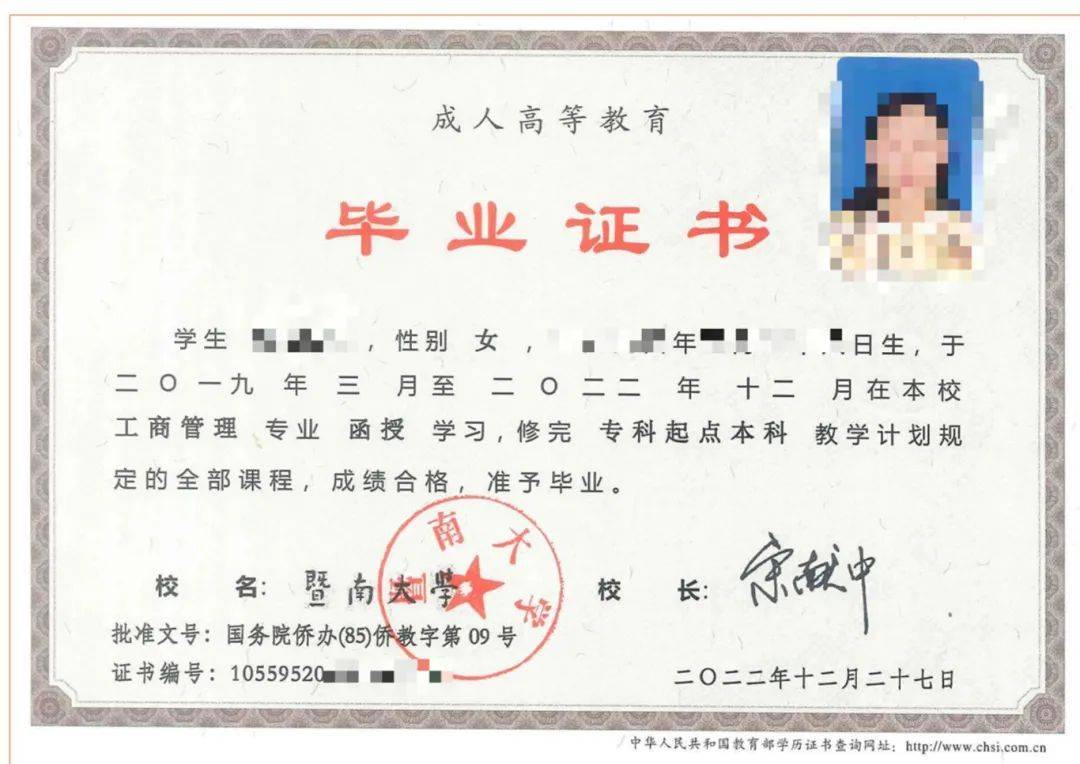 成人高等教育
毕业证书
学生 ，性别 女 ， 年 日生，于
二〇一九 年 三 月至 二〇二二 年 十二 月在本校
工商管理 专业 函授 学习，修完 专科起点本科 教学计划规
定的全部课程，成绩合格，准予毕业。
暨南大学
校 名：暨南大学 校 长：宋献中
批准文号：国务院侨办(85)侨教字第 09 号
证书编号：10559520
二〇二二年十二月二十七日
中华人民共和国教育部学历证书查询网址：http://www.chsi.com.cn